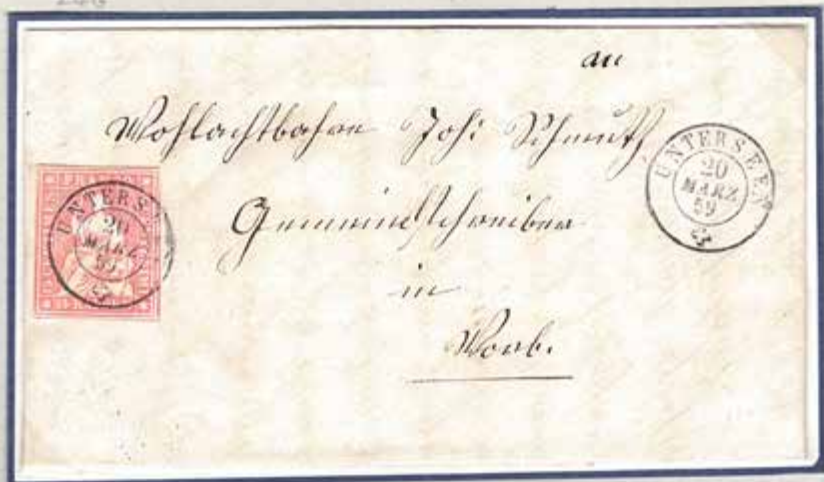 an
Wohlachtbaren Joh: Schmutz
Gemeindschreiber
in
Worb.
UNTERSEEN
20
MÆRZ
59
UNTERS
20
MÆRZ
59
FRANCO